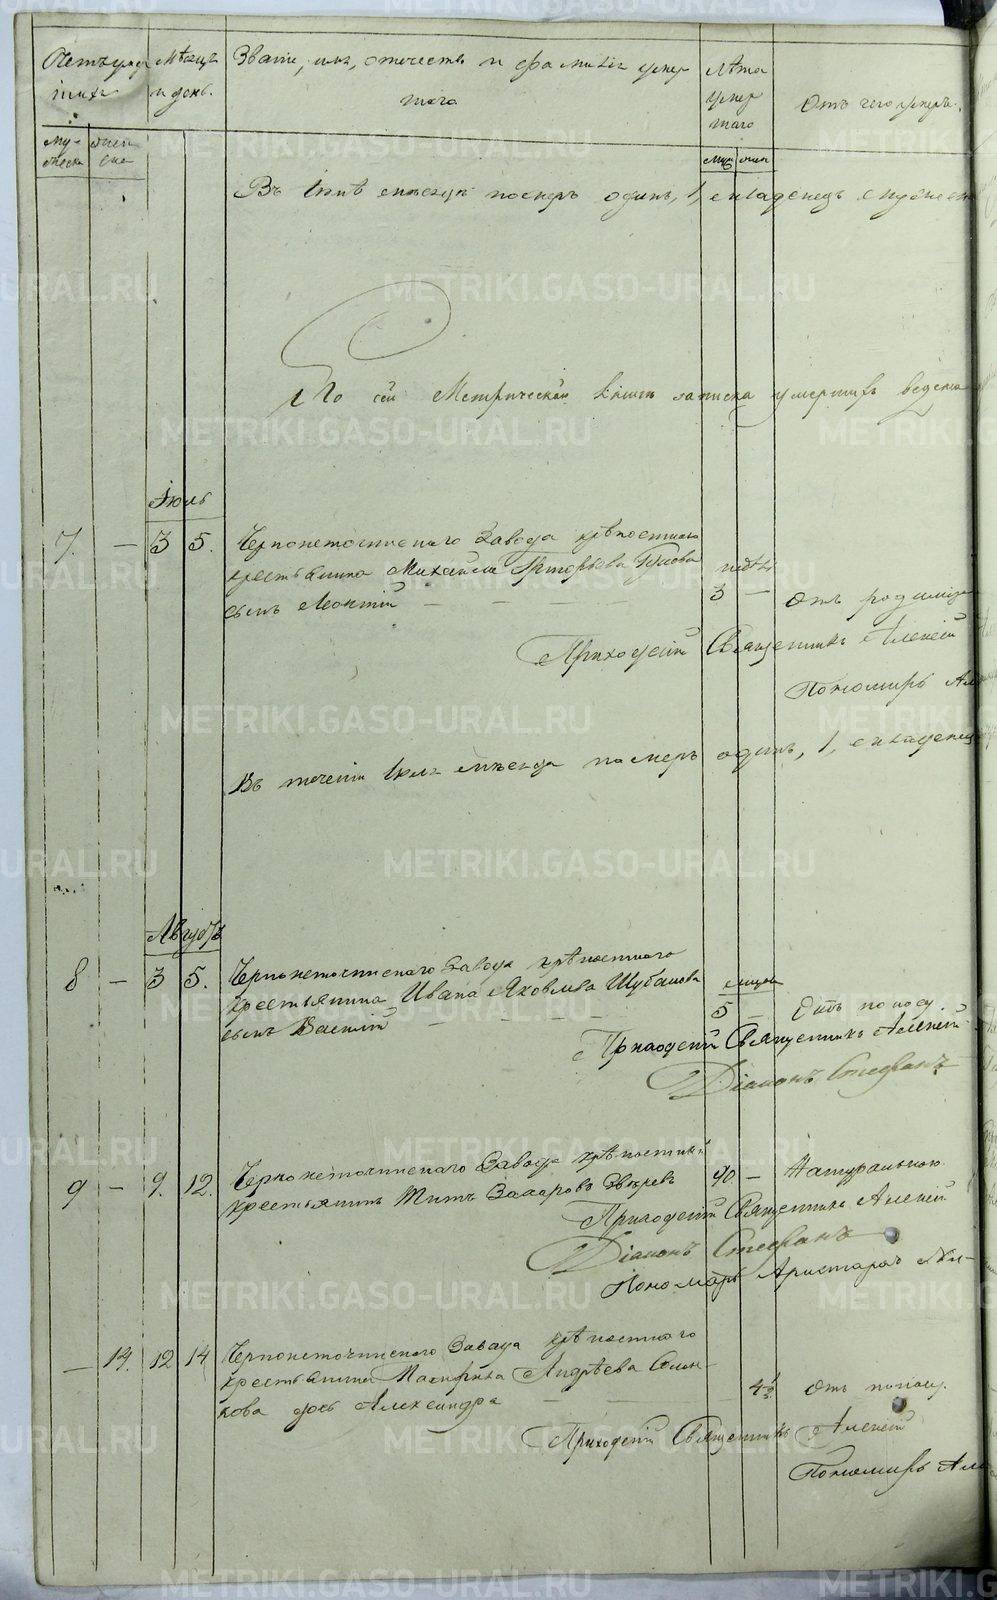 Счетъ умер Мѣсяцъ Званіе, имя, отчество и фамилія умер Лѣта
шихъ и день. шаго умер Отъ чего умеръ.
шаго
Му- Жен
жеска ска Муж жен
Въ Іюнѣ мѣсяцѣ померъ одинъ, 1, младенецъ мужеск
По сей Метрической книгѣ записка умершихъ ведена
Іюль
7. — 3 5. Черноисточинскаго Завода крѣпостнаго
крестьянина Михаила Григорьева сынъ Леонтій
3 — Отъ родимца
Приходскій Священникъ Алексій
Пономарь
Въ теченіи Іюля мѣсяца померъ одинъ, 1, младенец
Августъ
8 — 3 5. Черноисточинскаго Завода крѣпостнаго
крестьянина Ивана Яковлева Шубанова мѣсяц
сынъ Василій — — — 5 — Отъ поносу.
Приходскій Священникъ Алексій
Діаконъ Стефанъ
9 — 9. 12. Черноисточинскаго Завода крѣпостный 90. — Натуральною
крестьянинъ Титъ Захаровъ Звѣревъ
Приходскій Священникъ Алексій
Діаконъ Стефанъ
Пономарь Аристархъ
— 14. 12 14 Черноисточинскаго Завода крѣпостнаго
крестьянина Андрѣева Солон
кова дочь Александра — — 4½ Отъ поносу.
Приходскій Священникъ Алексій
Пономарь
METRIKI.GASO-URAL.RU